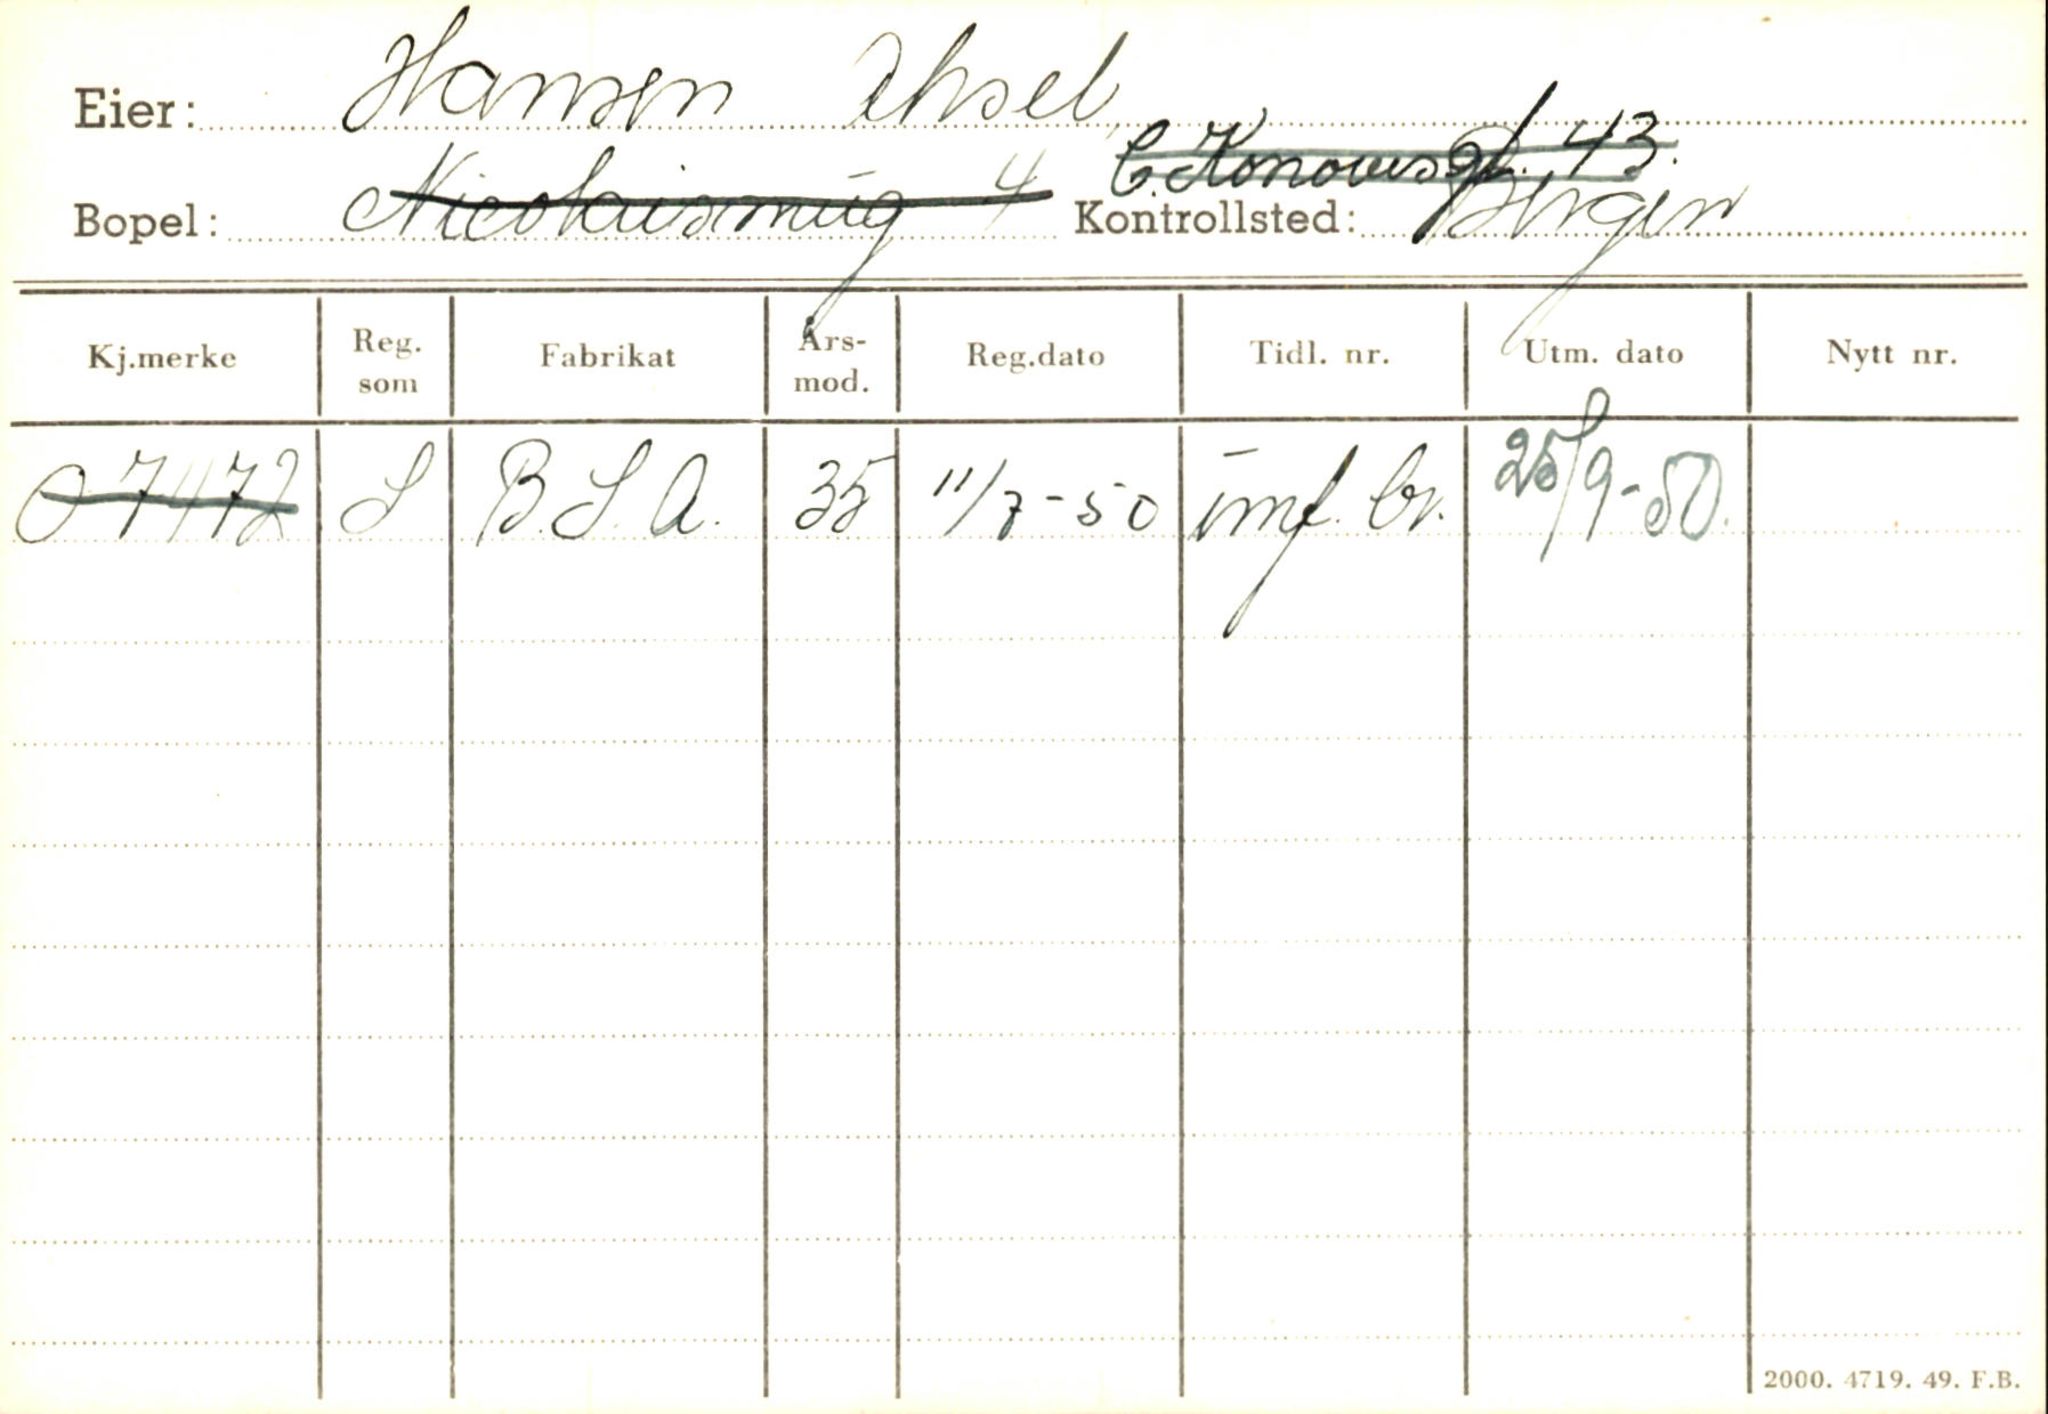 Eier: Hansen Aksel
C. Konowsgt. 43.
Bopel: Nicolaismug 4 Kontrollsted: Bergen
Kj.merke Reg. som Fabrikat Års-mod. Reg.dato Tidl. nr. Utm. dato Nytt nr.
O 7472 S B.S.A. 35 11/7-50 imp. br. 25/9-50.
2000. 4719. 49. F.B.